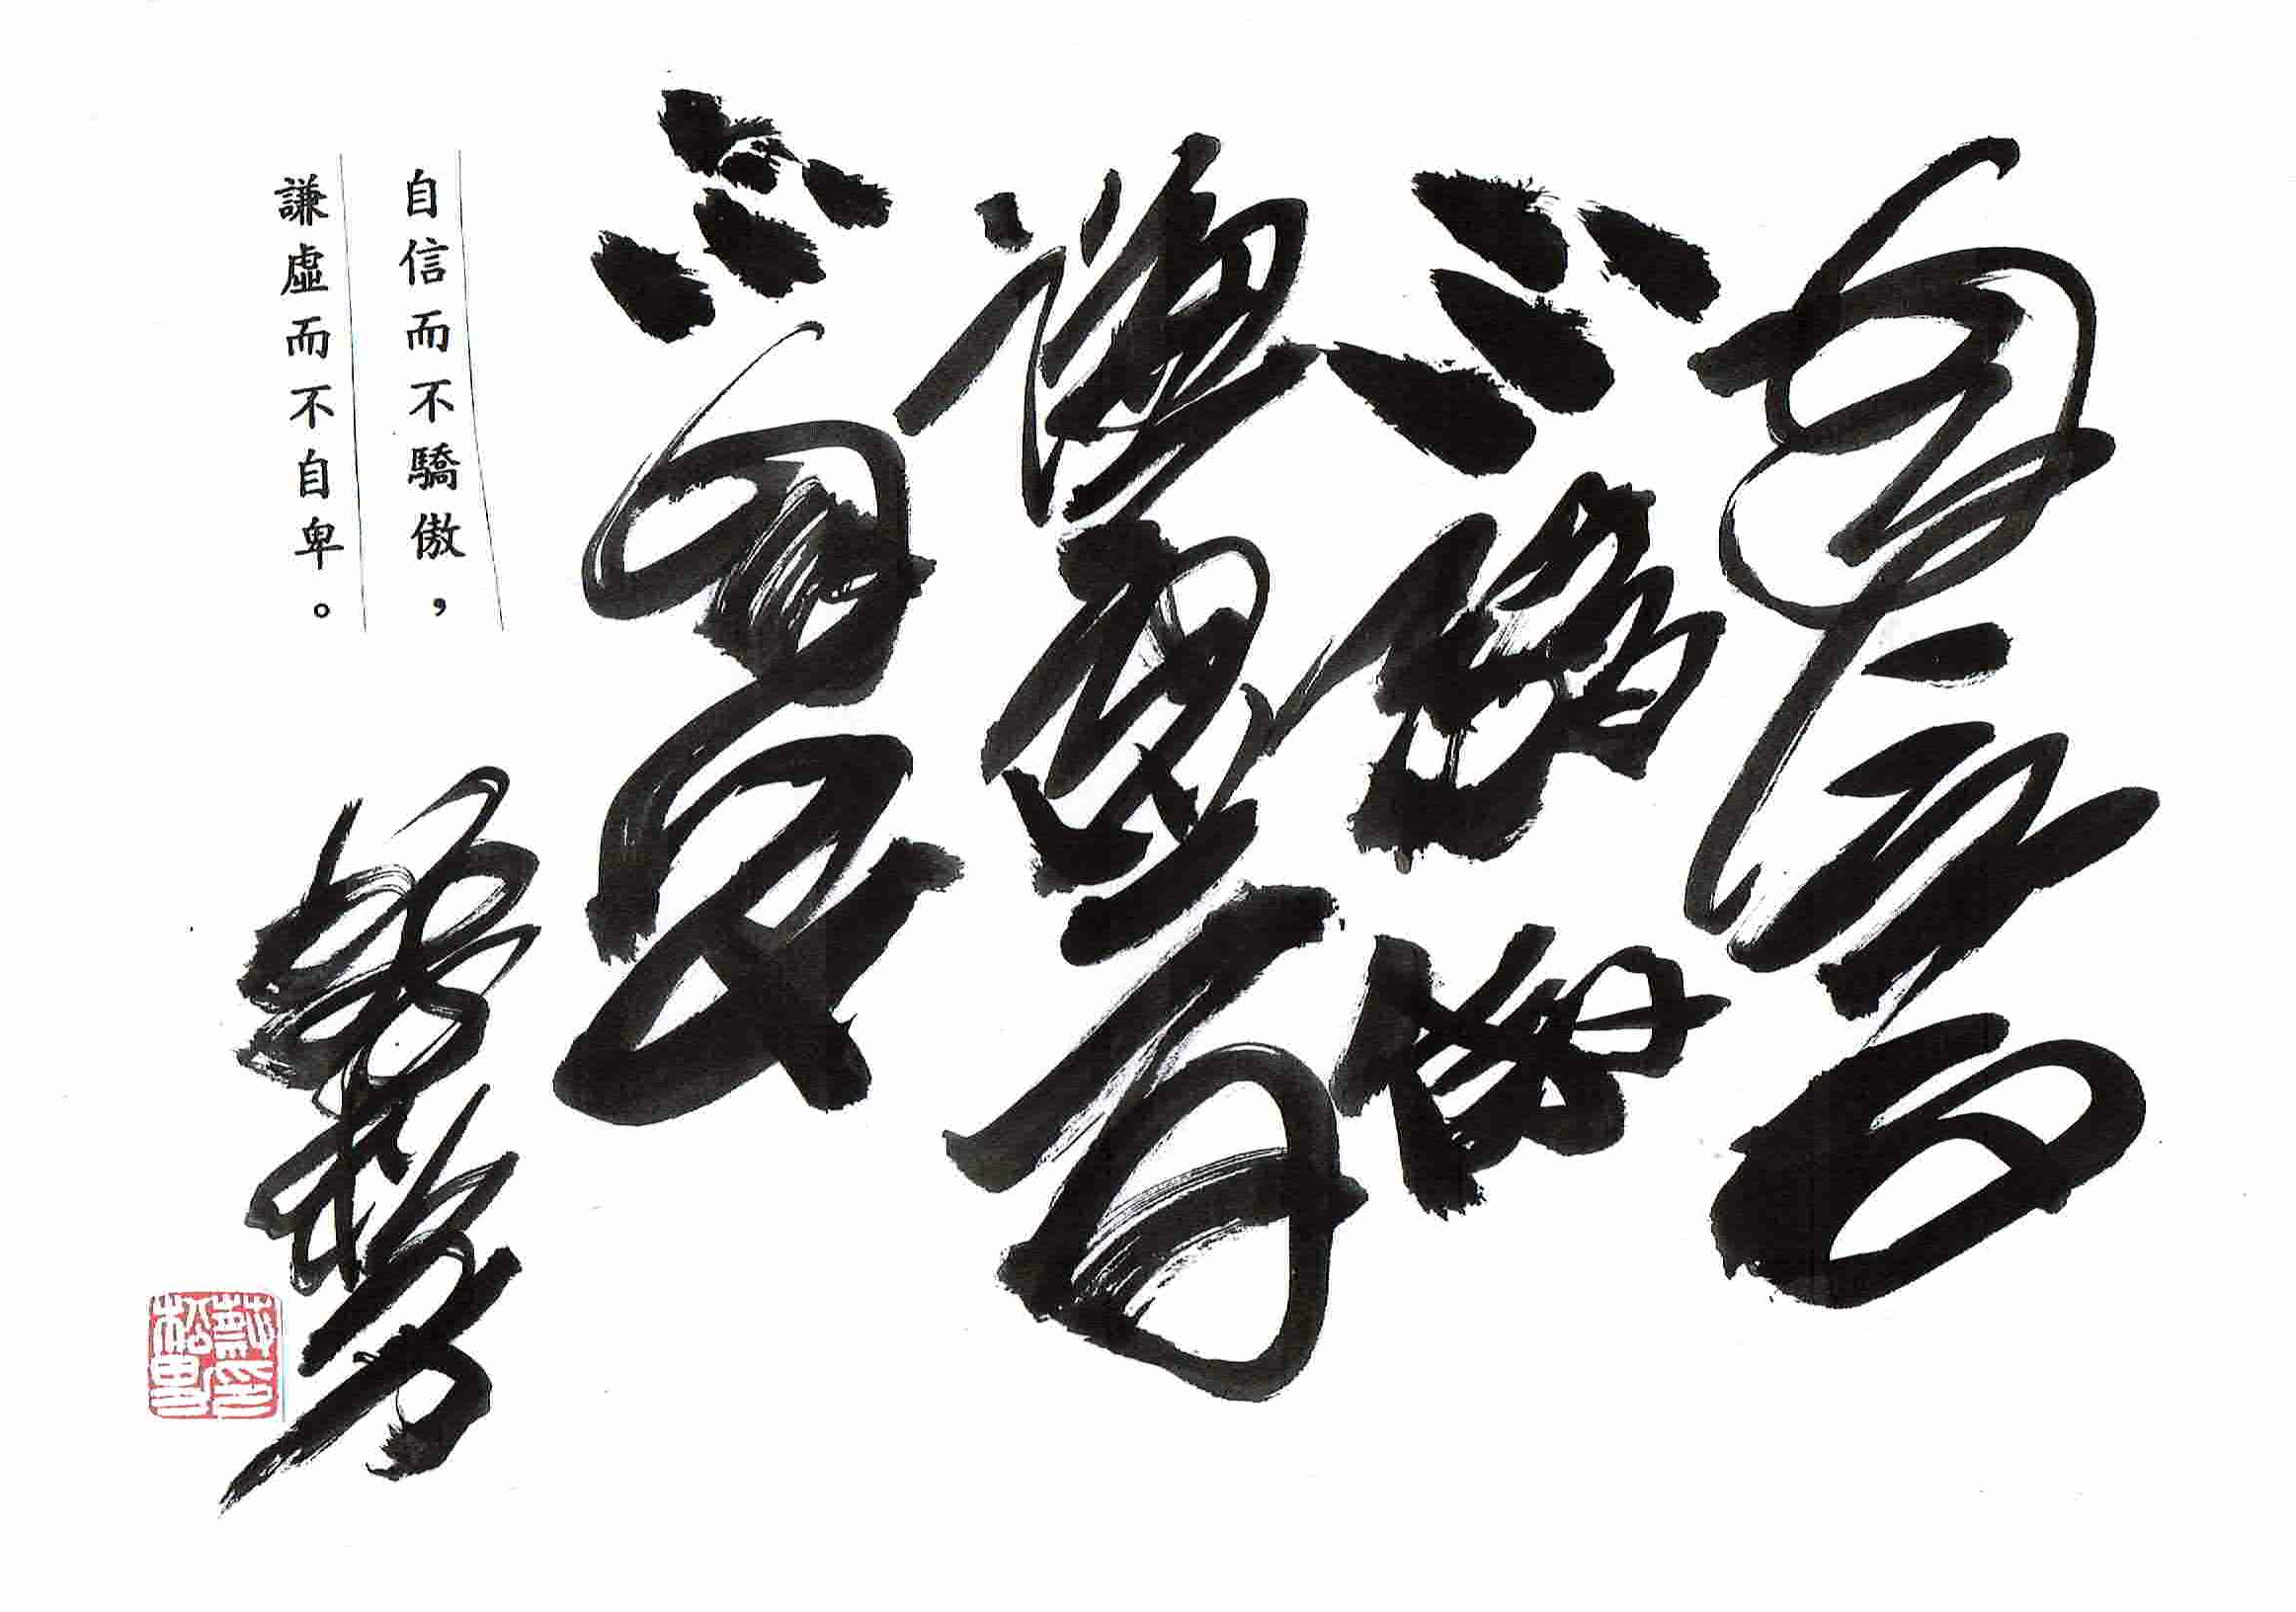 自信而
不驕傲
謙虛而
不自卑
自信而不驕傲，
謙虛而不自卑。
戴印
松男